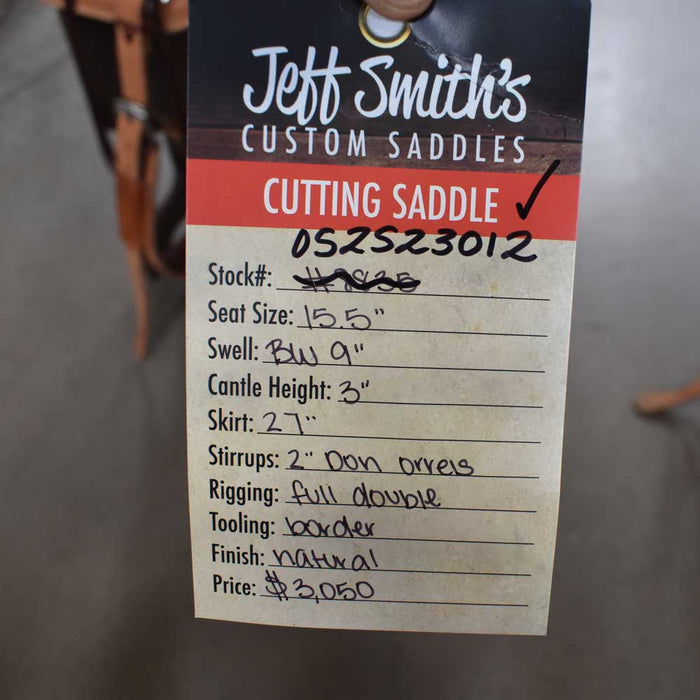 Jeff Smith's
CUSTOM SADDLES
CUTTING SADDLE ✓
DS2S23012
Stock#:
Seat Size: 15.5"
Swell: BW 9"
Cantle Height: 3"
Skirt: 27"
Stirrups: 2" Don orrels
Rigging: full double
Tooling: border
Finish: natural
Price: $3,050